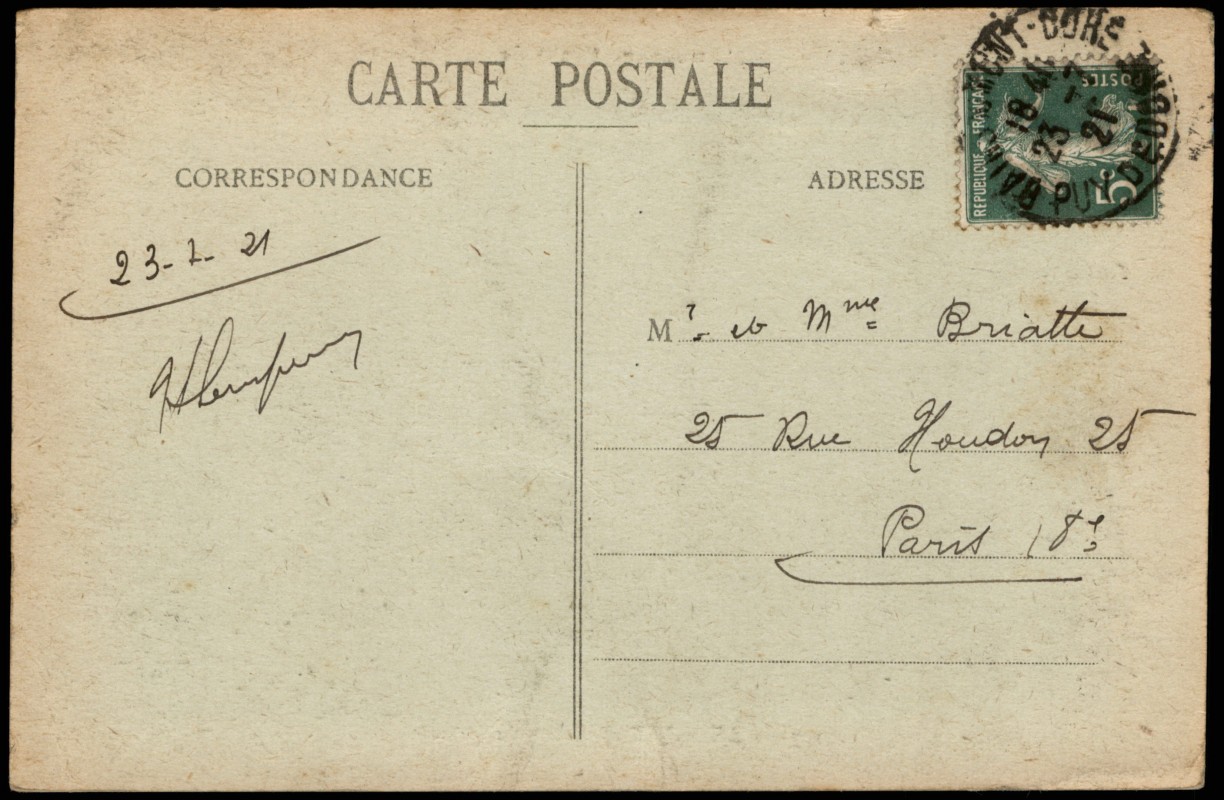 CARTE POSTALE
CORRESPONDANCE
ADRESSE
REPUBLIQUE FRANCAISE
POSTES
5c
MONT-DORE
18 4
23
21
PUY DE DOME
23-2-21
Mr. et Mme Briatte
25 Rue Houdon 25
Paris 18e